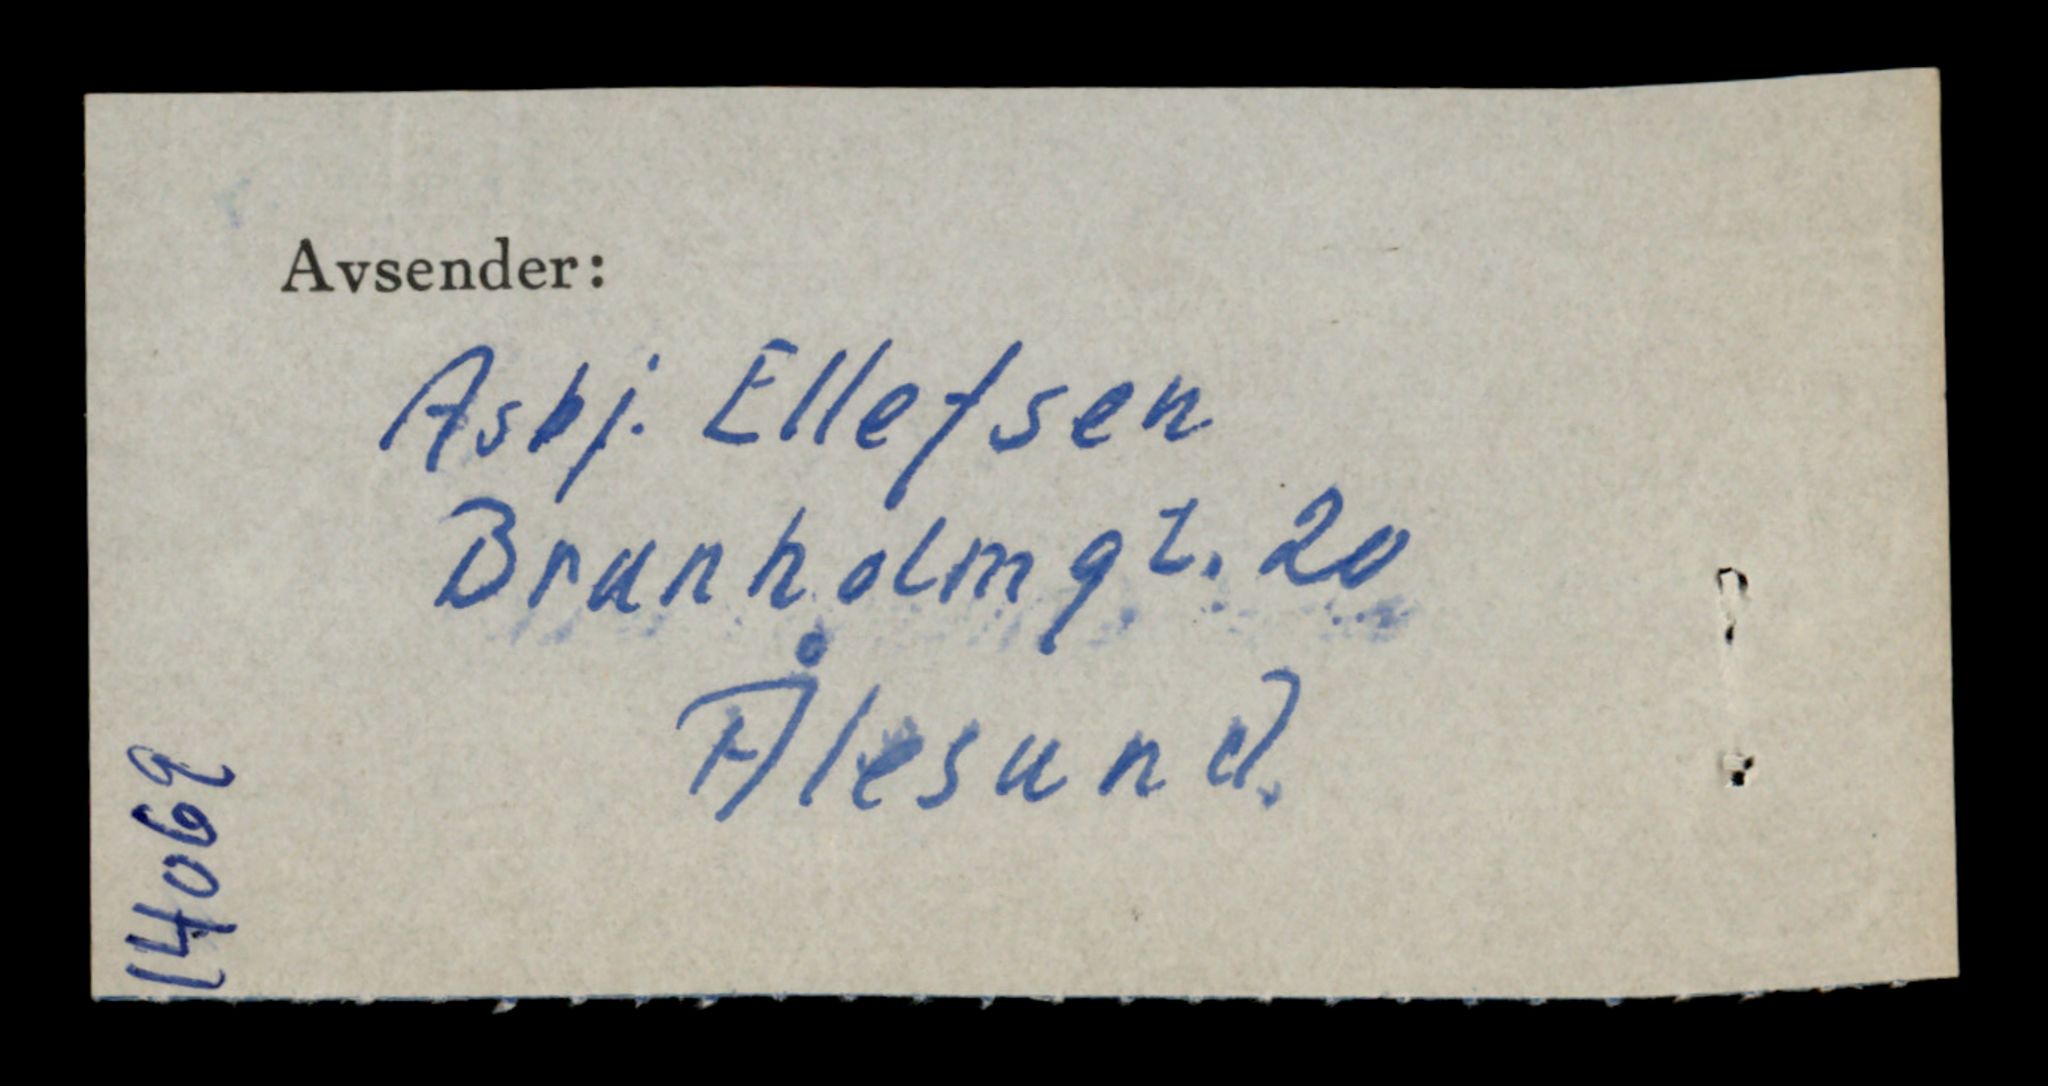 Avsender:
Asbj. Ellefsen
Brunholmgt. 20
Ålesund.
14069